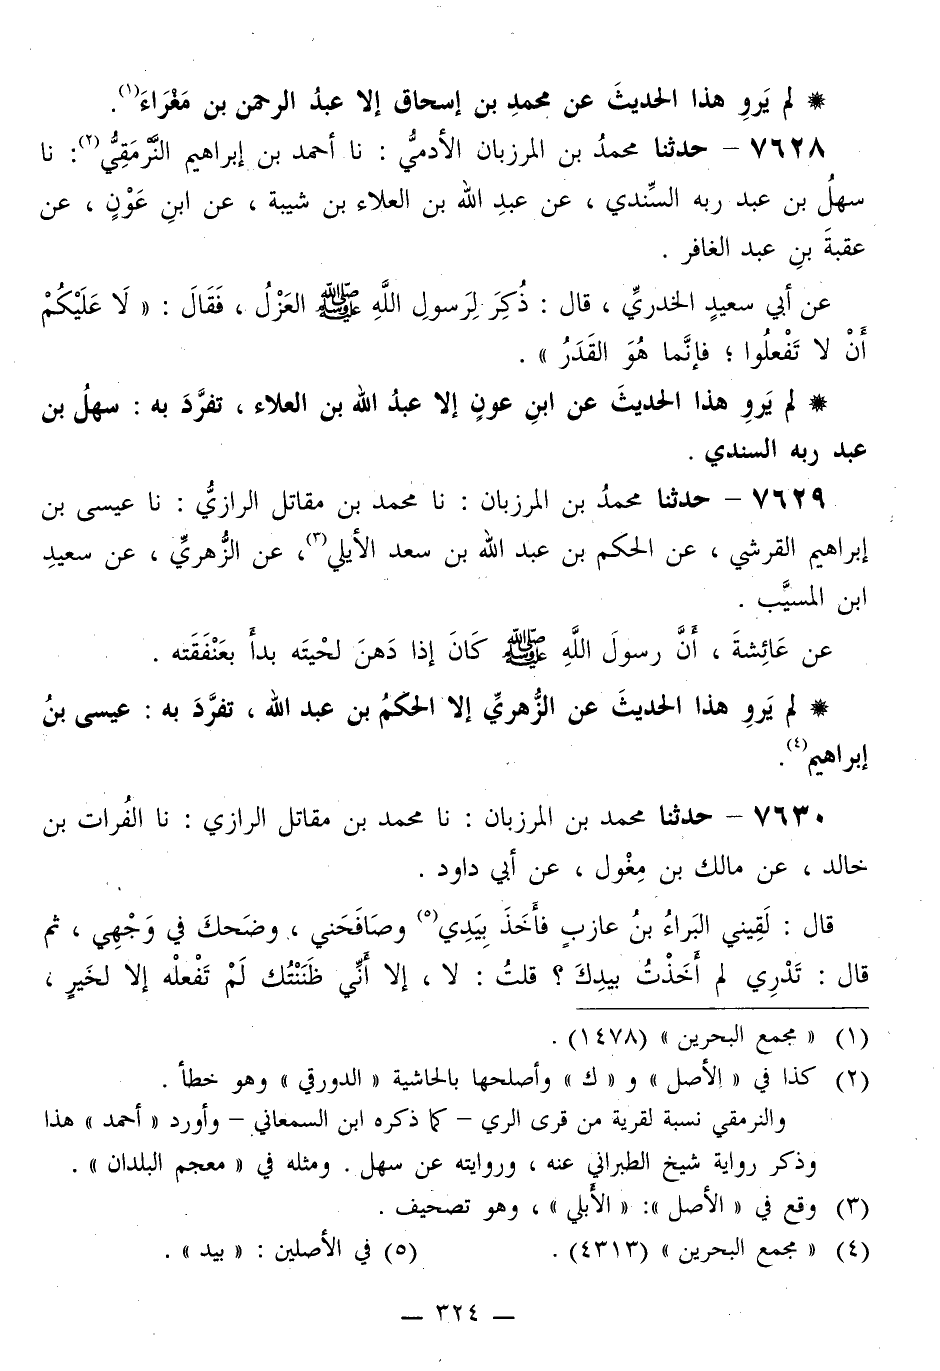 * لم يَروِ هذا الحديثَ عن محمدِ بن إسحاق إلا عبدُ الرحمن بن مَغْرَاءَ(١).
٧٦٢٨ – حدثنا محمدُ بن المرزبان الأدميُّ : نا أحمد بن إبراهيم النَّرْمَقِيُّ(٢): نا
سهلُ بن عبد ربه السِّندي ، عن عبدِ الله بن العلاء بن شيبة ، عن ابنِ عَوْنٍ ، عن
عقبةَ بنِ عبد الغافر .
عن أبي سعيدٍ الخدريِّ ، قال : ذُكِرَ لِرَسولِ اللَّهِ ﷺ العَزْلُ ، فَقَالَ : « لَا عَلَيْكُمْ
أَنْ لا تَفْعلُوا ؛ فإنَّما هُوَ القَدَرُ » .
* لم يَروِ هذا الحديثَ عن ابنِ عونٍ إلا عبدُ الله بن العلاء ، تفرَّدَ به : سهلُ بن
عبد ربه السندي .
٧٦٢٩ – حدثنا محمدُ بن المرزبان : نا محمد بن مقاتل الرازيُّ : نا عيسى بن
إبراهيم القرشي ، عن الحكم بن عبد الله بن سعد الأيلي(٣)، عن الزُّهريِّ ، عن سعيدِ
ابن المسيَّب .
عن عَائِشةَ ، أَنَّ رسولَ اللَّهِ ﷺ كَانَ إذا دَهنَ لحْيتَه بدأَ بعَنْفَقَته .
* لم يَروِ هذا الحديثَ عن الزُّهريِّ إلا الحكمُ بن عبد الله ، تفرَّدَ به : عيسى بنُ
إبراهيم(٤).
٧٦٣٠ – حدثنا محمد بن المرزبان : نا محمد بن مقاتل الرازي : نا الفُرات بن
خالد ، عن مالك بن مِغْول ، عن أبي داود .
قال : لَقِيني البَراءُ بنُ عازبٍ فأَخَذَ بِيَدِي(٥) وصَافَحَني ، وضَحكَ في وَجْهِي ، ثم
قال : تَدْرِي لم أَخَذْتُ بيدِكَ ؟ قلتُ : لا ، إلا أَنِّي ظَنَنْتُك لَمْ تَفْعلْه إلا لخَيرٍ ،
(١) « مجمع البحرين » (١٤٧٨) .
(٢) كذا في « الأصل » و « ك » وأصلحها بالحاشية « الدورقي » وهو خطأ .
والنرمقي نسبة لقرية من قرى الري – كما ذكره ابن السمعاني – وأورد « أحمد » هذا
وذكر رواية شيخ الطبراني عنه ، وروايته عن سهل . ومثله في « معجم البلدان » .
(٣) وقع في « الأصل »: « الأُبلي » ، وهو تصحيف .
(٤) « مجمع البحرين » (٤٣١٣) . (٥) في الأصلين : « بيد » .
— ٣٢٤ —